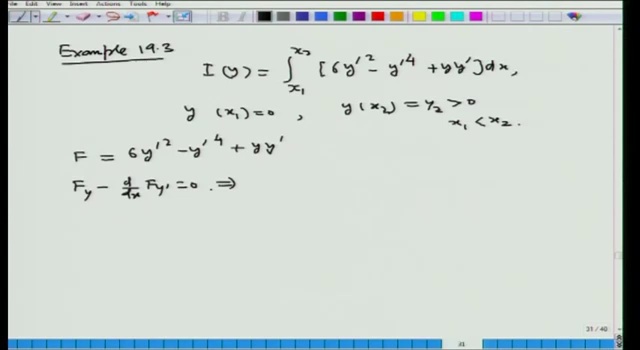 Edit View Insert Actions Tools Help
Example 19.3
I(y) = ∫_{x₁}^{x₂} [6y'² - y'⁴ + yy']dx,
y(x₁)=0 , y(x₂) = y₂ > 0
x₁ < x₂.
F = 6y'² - y'⁴ + yy'
F_y - d/dx F_y' = 0 . ⇒
31 / 40
31